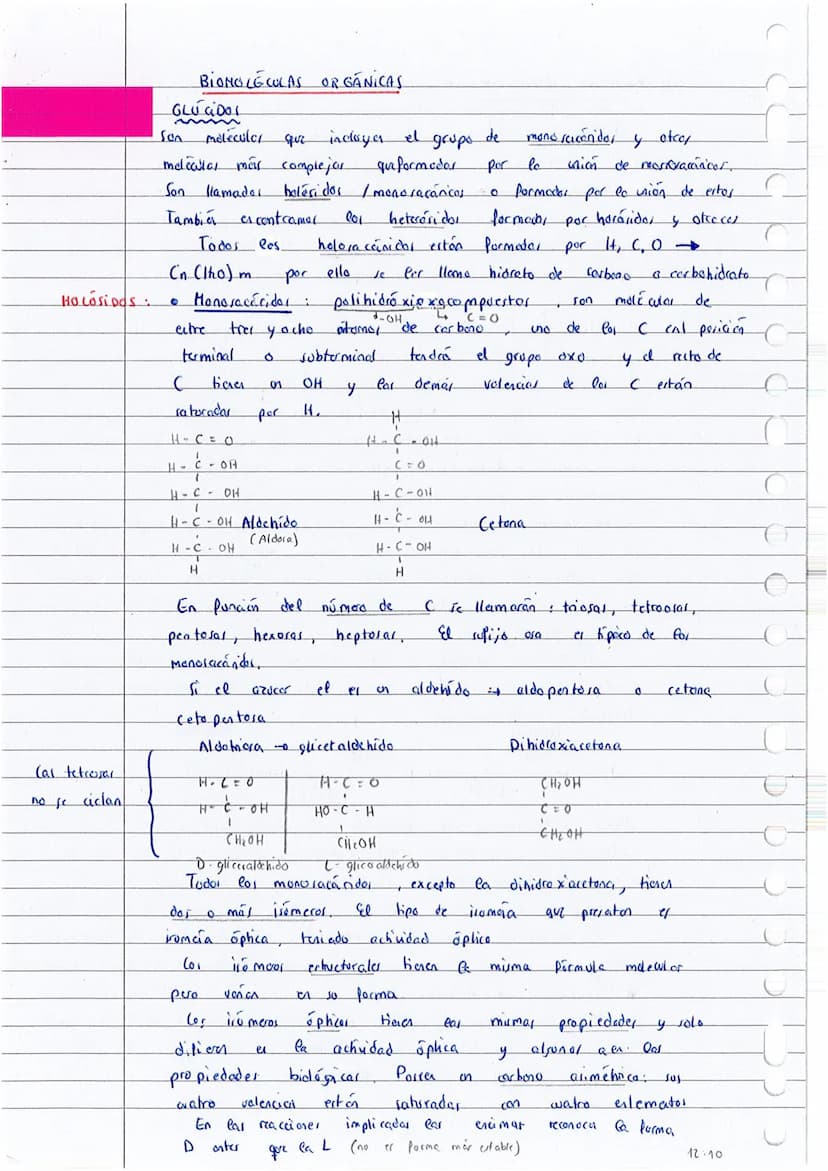 BIOMOLÉCULAS ORGÁNICAS
GLÚCIDOS
Son moléculas que incluyen el grupo de monosacáridos y otras
moléculas más complejas que formados por la unión de monosacáridos.
Son llamados holósidos / monosacáridos o formados por la unión de estos
También encontramos los heterósidos formados por horánidos y otras
Todos los holosacáridos están formados por H, C, O →
Cn (H2O) m por ello se les llama hidrato de carbono o carbohidrato
HOLÓSIDOS : • Monosacáridos : polihidróxioxocompuestos , son moléculas de
↳-OH ↳ C=O
entre tres y ocho átomos de carbono , uno de los C en posición
terminal o subterminal tendrá el grupo oxo y el resto de
C tienen un OH y las demás valencias de los C están
saturadas por H.
H
H - C = O H - C - OH
H - C - OH C = O
H - C - OH H - C - OH
H - C - OH Aldehído H - C - OH Cetona
(Aldosa)
H - C - OH H - C - OH
H H
En función del número de C se llamarán : triosas, tetrosas,
pentosas, hexosas, heptosas. El sufijo osa es típico de los
monosacáridos.
Si el azucar el es un aldehído → aldopentosa o cetona
cetopentosa
Aldotriosa → gliceraldehído Dihidroxiacetona
Las tetrosas
no se ciclan
H - C = O H - C = O CH2OH
H - C - OH HO - C - H C = O
CH2OH CH2OH CH2OH
D - gliceraldehido L - gliceraldehido
Todos los monosacáridos , excepto la dihidroxiacetona, tienen
dos o más isómeros. El tipo de isomería que presentan es
isomería óptica, teniendo actividad óptica
Los isómeros estructurales tienen la misma fórmula molecular
pero varían en su forma
Los isómeros ópticos tienen las mismas propiedades y solo
difieren en la actividad óptica y algunos a en las
propiedades biológicas. Poseen un carbono asimétrico: sus
cuatro valencias están saturadas con cuatro elementos
En las reacciones implicadas las enzimas reconocen la forma
D antes que la L (no es forma más estable)
12·10